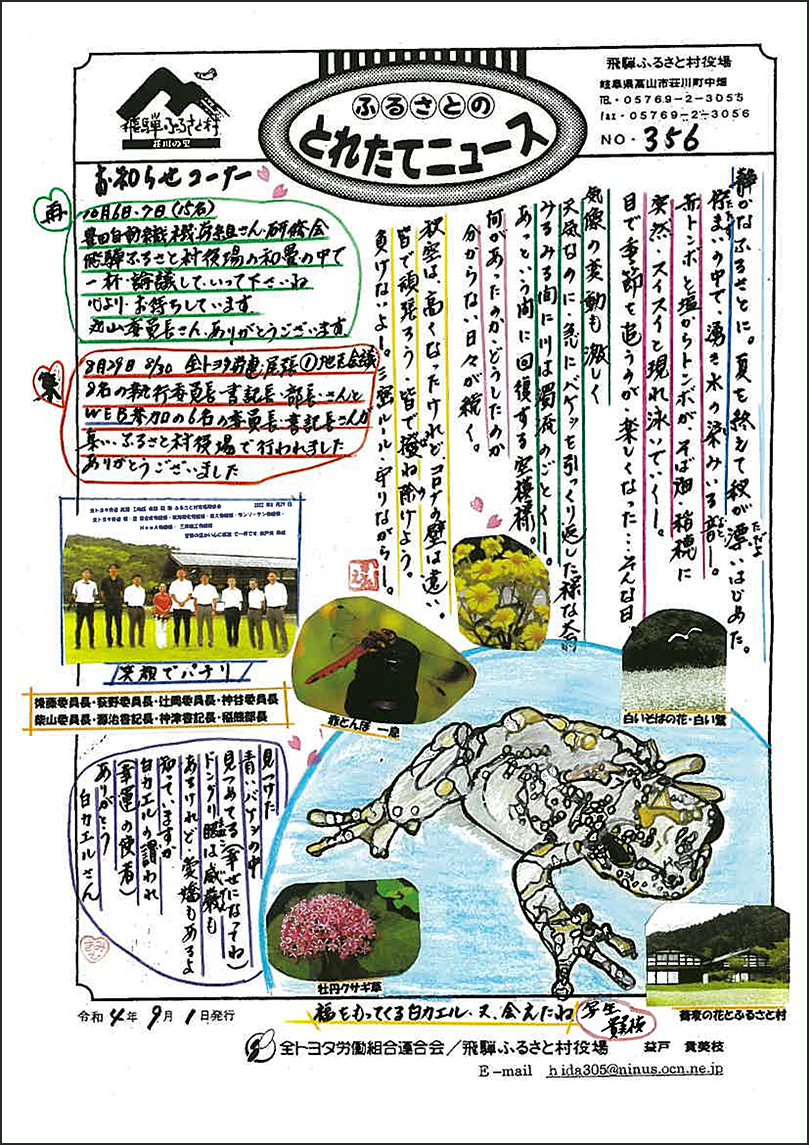 飛騨ふるさと村
荘川の里
ふるさとの
とれたてニュース
飛騨ふるさと村役場
岐阜県高山市荘川町中畑
TEL・05769-2-3055
fax・05769-2-3056
NO・356
静かなふるさとに。夏を終えて秋が漂いはじめた。
佇まいの中で、湧き水の染みいる音ー。
赤トンボと塩からトンボが、そば畑・稲穂に
突然 スイスイと現れ泳いでいくー。
目で季節を追うのが、楽しくなった…そんな日。
気候の変動も激しく
天気なのに、急にバケツを引っくり返した様な大雨
みるみる間に川は濁流のごとくー。
あっという間に回復する空模様。
何があったのか、どうしたのか
分からない日々が続く。
秋空は、高くなったけれどコロナの壁は遠い。
皆で頑張ろう・皆で撥ね除けよう。
負けないよー。三密ルール守りながらー。
お知らせコーナー
再
10月6日、7日(15名)
豊田自動織機労組さん・研修会
飛騨ふるさと村役場の和畳の中で
一杯・論議して、いって下さいね
心より、お待ちしています
丸山委員長さん、ありがとうございます
集
8月29日 8/30 全トヨタ労連・尾張①地区会議
8名の執行委員長・書記長・部長・さんと
WEB参加の6名の委員長・書記長さんが
集い、ふるさと村役場で行われました
ありがとうございました
笑顔でパチリ
後藤委員長・荻野委員長・辻岡委員長・神谷委員長
柴山委員長・源治書記長・神津書記長・稲熊部長
赤とんぼ 一息
白いそばの花・白い鷺
見つけた
青いバケツの中
見つめてる(幸せになってね)
ドングリ瞳は威厳も
あるけれど、愛嬌もあるよ
知っていますか
白カエルの謂われ
(幸運の使者)
ありがとう
白カエルさん
牡丹クサギ草
蕎麦の花とふるさと村
福をもってくる白カエル・又、会えたね
令和4年9月1日発行
全トヨタ労働組合連合会/飛騨ふるさと村役場 益戸 貴英枝
E-mail hida305@ninus.ocn.ne.jp